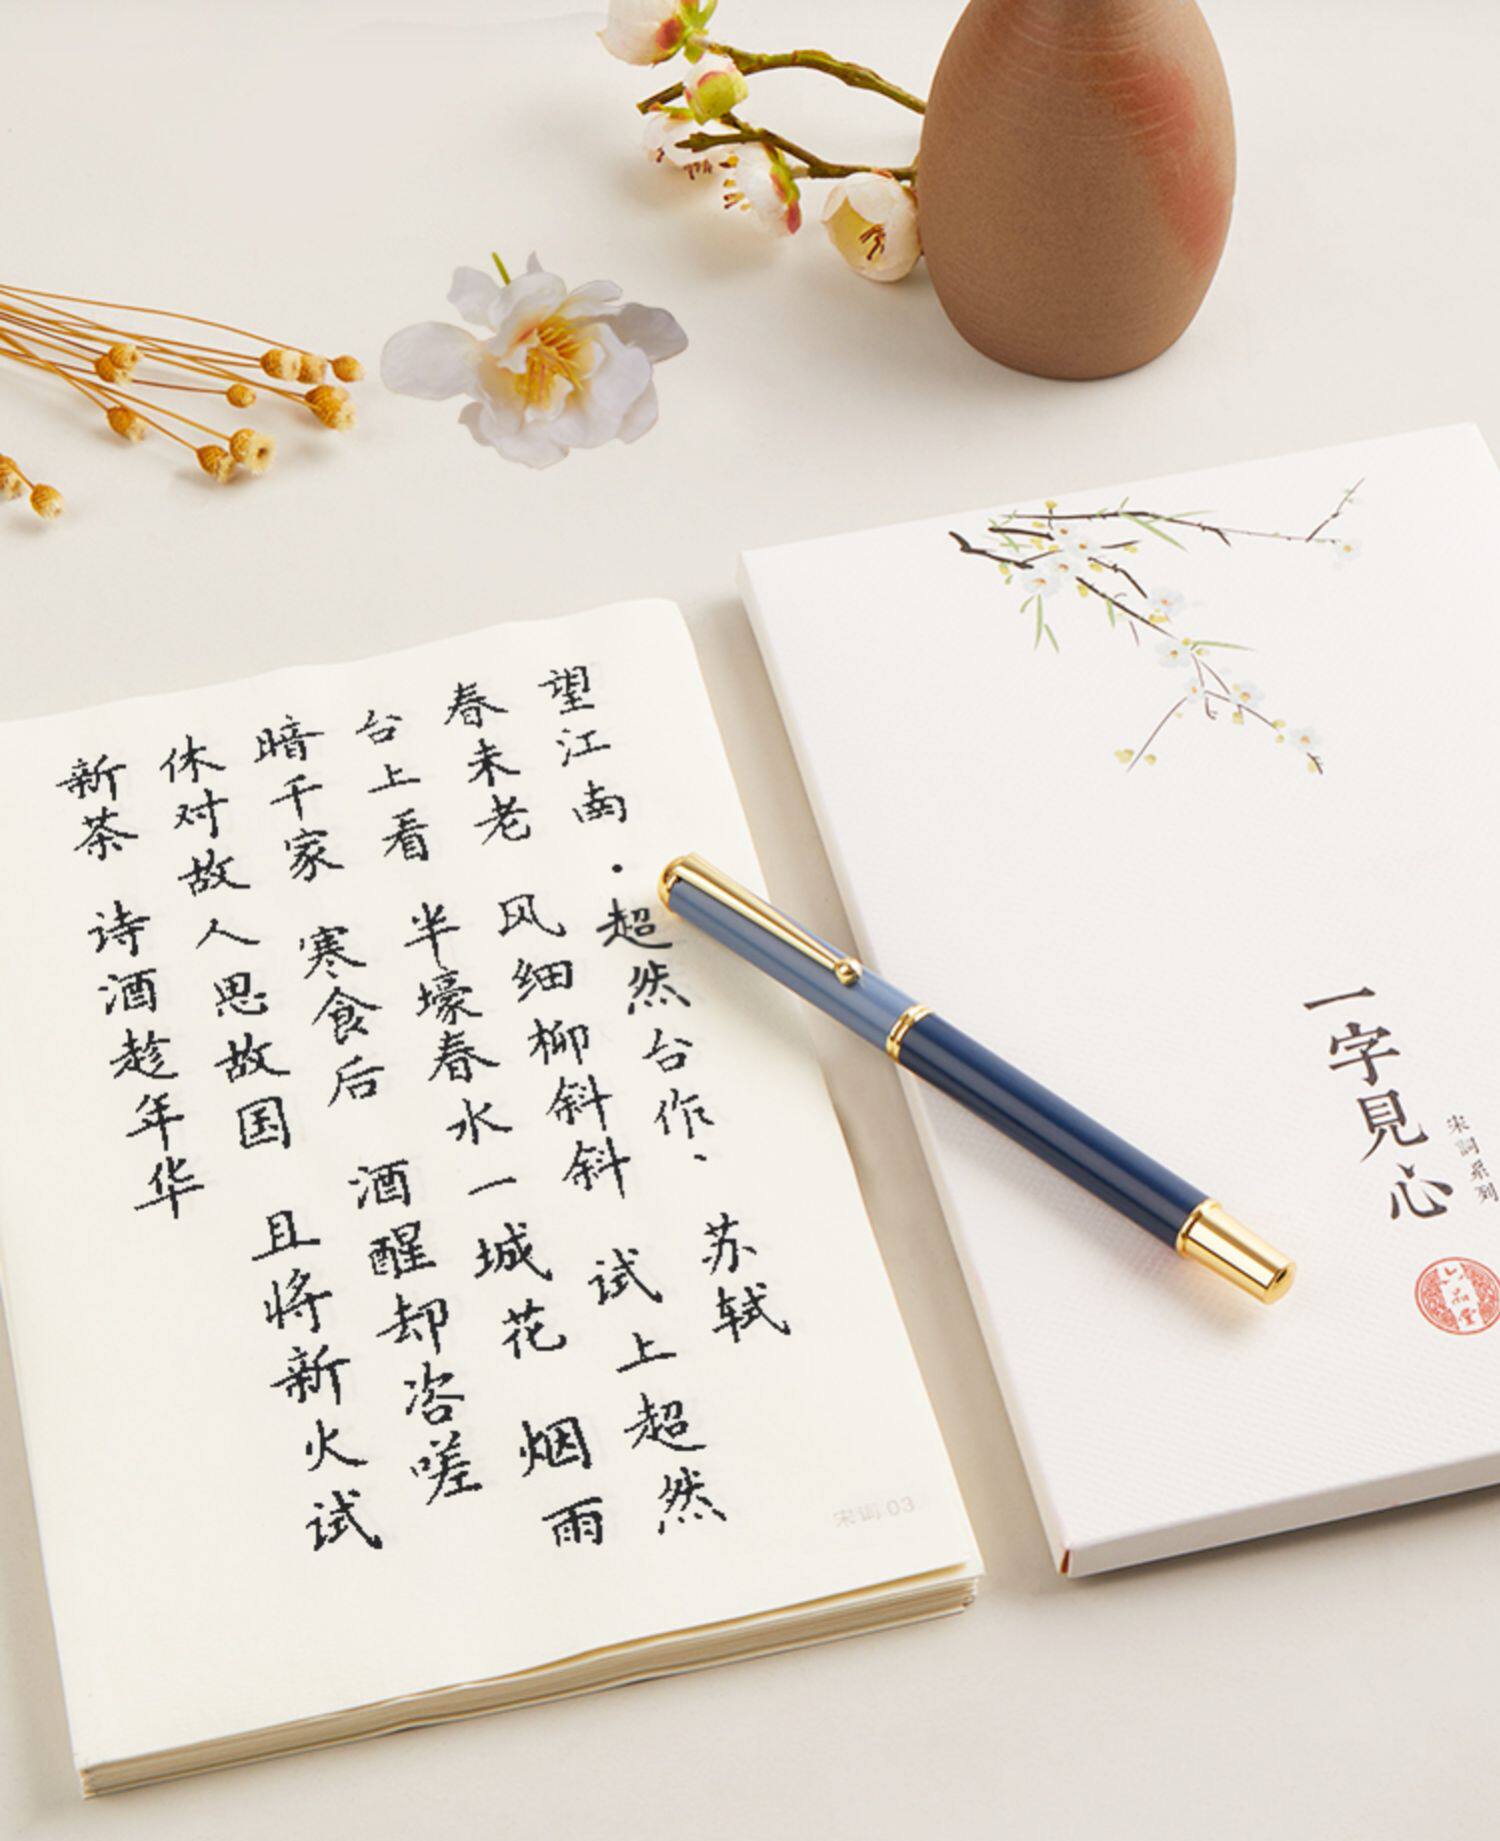 望江南·超然台作· 苏轼
春未老 风细柳斜斜 试上超然
台上看 半壕春水一城花 烟雨
暗千家 寒食后 酒醒却咨嗟
休对故人思故国 且将新火试
新茶 诗酒趁年华
宋词 03
一字見心
宋詞系列
六品堂